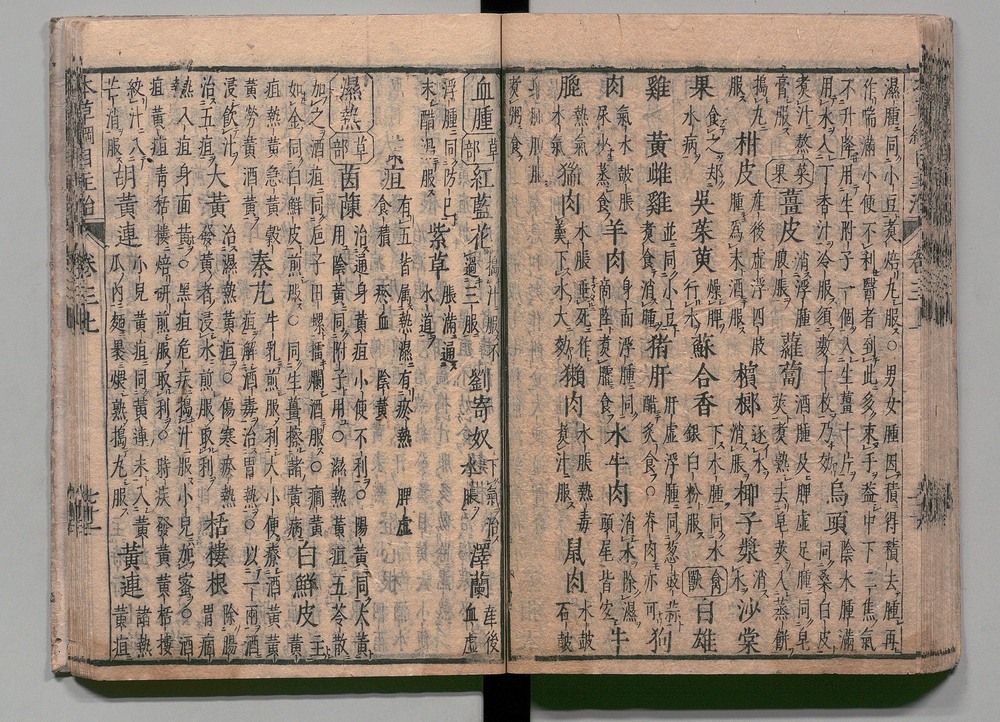 濕腫同小豆煮焙丸服○男女腫因積得積去腫再
作喘滿小便不利醫者到此多束手蓋中下二焦氣
不升降用生附子一個入生薑十片 烏頭 陰水腫滿同桑白皮
用水入丁香汁冷服須數十枚乃效
煮汁熬 膏服 菓 薑皮 消浮腫腹脹 蘿蔔 酒腫及脾虛足腫同皂莢煮熟去皂莢入蒸餅
搗丸服 柑皮 產後虛浮四肢腫爲末酒服 檳榔 逐水消脹 椰子漿 消水 沙棠
果 食之却水病 吳茱萸 燥脾行水 蘇合香 下水腫同水銀白粉服 禽獸 白雄
雞 黃雌雞 並同小豆煮食消腫 猪肝 肝虛浮腫同葱豉蒜醋炙食○脊肉亦可 狗
肉 氣水鼓脹尿少蒸食 羊肉 身面浮腫同商陸煮臛食 水牛肉 消水除濕頭尾皆宜 牛
膍 熱氣水氣 猯肉 水脹垂死作羹下水大效 獺肉 水脹熱毒煮汁服 鼠肉 水鼓石鼓
煮粥食
血腫 草部 紅藍花 搗汁服不過三服 劉寄奴 下氣治水脹 澤蘭 產後血虛
浮腫同防已末醋湯服 紫草 脹滿通水道
疸 有五皆屬熱濕有瘀熱 脾虛 食積 瘀血 陰黃
濕熱 草部 茵蔯 治通身黃疸小便不利○陽黃同大黃用陰黃同附子用○濕熱黃疸五苓散
加之酒疸同巵子田螺擂爛酒服○癇黃如金同白鮮皮煎服○同生薑擦諸黃病 白鮮皮 主
疸熱黃急黃穀黃勞黃酒黃 秦艽 牛乳煎服利大小便療酒黃黃疸解酒毒治胃熱○以一兩酒
浸飲汁治五疸 大黃 治濕熱黃疸○傷寒瘀熱發黃者浸水煎服取利 栝樓根 除腸胃癇
熱入疸身面黃○黑疸危疾搗汁服小兒加蜜○酒疸黃疸青栝樓焙研煎服取利○時疾發黃黃栝樓
絞汁入芒消服 胡黃連 小兒黃疸同黃連末入黃瓜內麵裹煨熟搗丸服 黃連 諸熱黃疸
本草綱目主治 卷三上